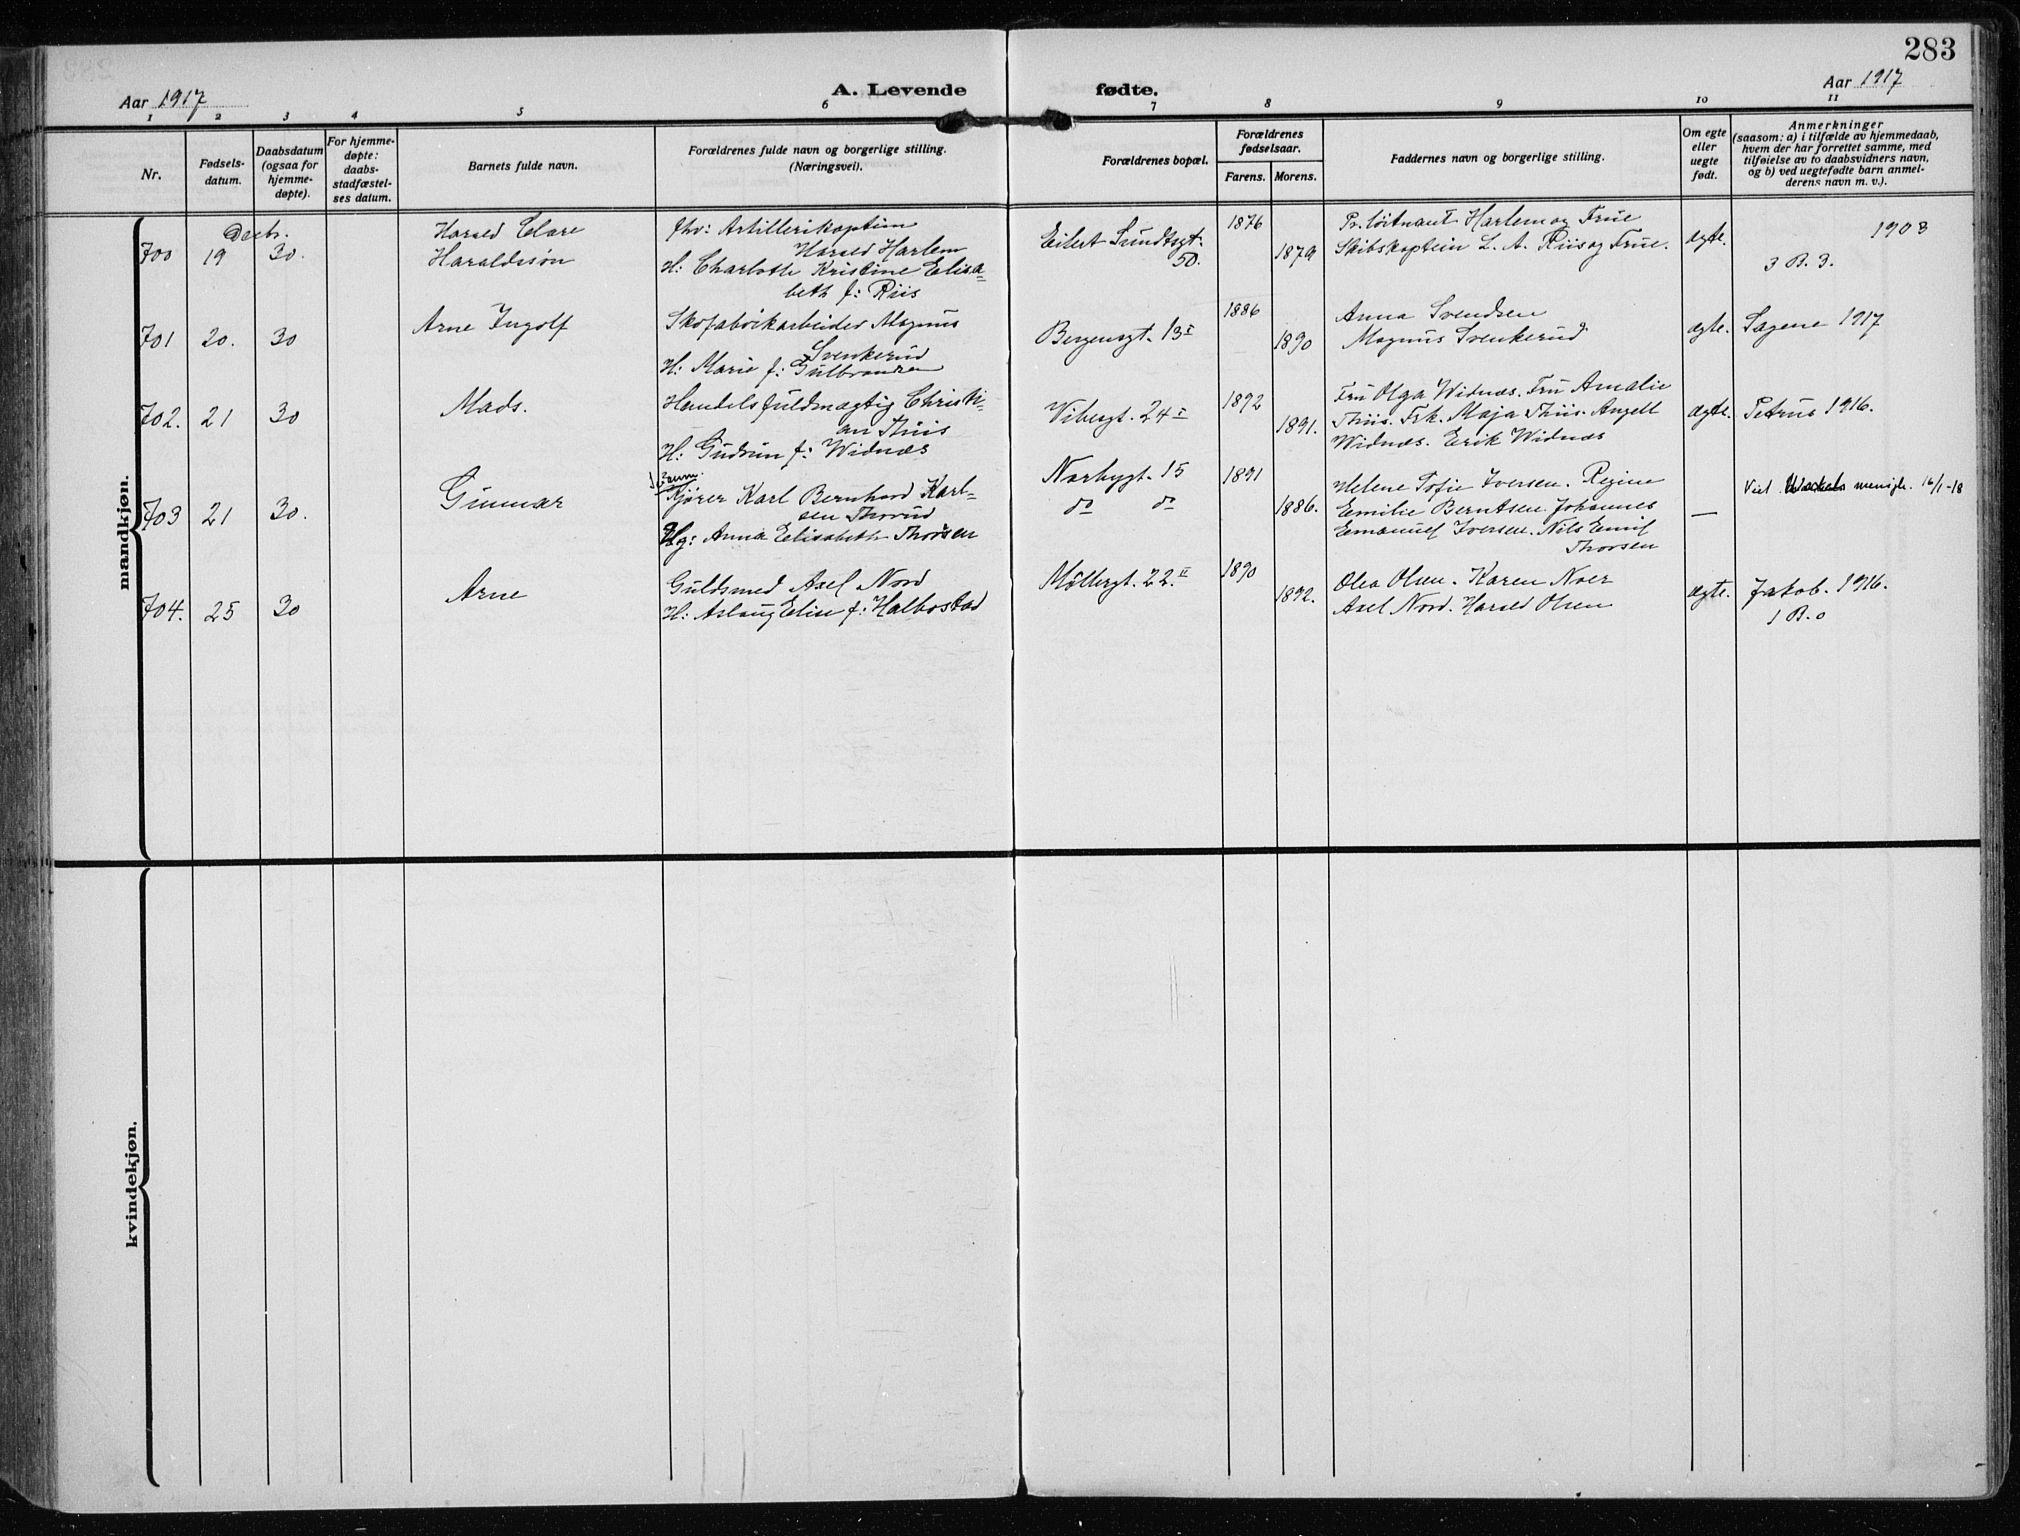 283
Aar 1917
A. Levende fødte.
Aar 1917
1 2 3 4 5 6 7 8 9 10 11
Nr.
Fødsels-
datum.
Daabsdatum
(ogsaa for
hjemme-
døpte).
For hjemme-
døpte:
daabs-
stadfæstel-
ses datum.
Barnets fulde navn.
Forældrenes fulde navn og borgerlige stilling.
(Næringsvei).
Forældrenes bopæl.
Forældrenes
fødselsaar.
Farens. Morens.
Faddernes navn og borgerlige stilling.
Om egte
eller
uegte
født.
Anmerkninger
(saasom: a) i tilfælde av hjemmedaab,
hvem der har forrettet samme, med
tilføielse av to daabsvidners navn,
og b) ved uegtefødte barn anmel-
derens navn m. v.).
mandkjøn.
Decbr.
700
19
30.
Harald Clare
Haraldssøn
fhv: Artillerikaptein
Harald Harlem
H: Charlotte Kristine Elisa-
beth f: Riis
Eilert Sundtsgt:
50.
1876
1879
Pr. løitnant Harlem og Frue
Skibskaptein L. A. Riis og Frue.
ægte.
1903
3 B. 3.
701
20.
30
Arne Ingolf
Skofabrikarbeider Magnus
Svenkerud
H: Marie f: Gulbrandsen
Bergensgt. 13 I
1886
1890
Anna Svendsen
Magnus Svenkerud
ægte.
Sagene 1917
702.
21
30
Mads.
Handelsfuldmægtig Christi-
an Thiis
H: Gudrun f: Widnæs
Vibesgt. 24 I
1892
1891.
Fru Olga Widnæs. Fru Amalie
Thiis. Frk. Maja Thiis. Angell
Widnæs. Erik Widnæs
ægte.
Petrus 1916.
703
21
30.
Gunnar
Kjører Karl Bernhard Karl-
sen Thorud
Ug: Anna Elisabeth Thorsen
Norbygt. 15
do do
1891
1886.
Helene Sofie Iversen. Regine
Emilie Berntsen. Johannes
Emanuel Iversen. Nils Emil
Thorsen
—
Viet menigh. 16/1-18
704.
25
30
Arne
Guldsmed Axel Nord
H: Aslaug Elise f: Halbostad
Møllergt. 22. II
1890
1892.
Olea Olsen. Karen Noer
Axel Nord. Harald Olsen
ægte.
Jakob. 1916.
1 B. 0
kvindekjøn.